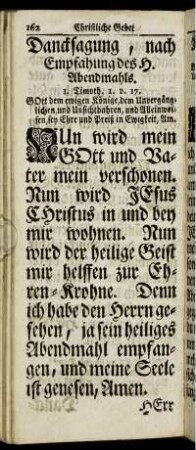 162 Christliche Gebet
Dancksagung, nach
Empfahung des H.
Abendmahls.
1. Timoth. 1. v. 17.
GOtt dem ewigen Könige, dem Unvergäng-
lichen, und Unsichtbahren, und Alleinwei-
sen, sey Ehre und Preiß in Ewigkeit, Am.
NUn wird mein
GOtt und Va-
ter mein verschonen.
Nun wird JEsus
CHristus in und bey
mir wohnen. Nun
wird der heilige Geist
mir helffen zur Eh-
ren-Krohne. Denn
ich habe den Herrn ge-
sehen, ja sein heiliges
Abendmahl empfan-
gen, und meine Seele
ist genesen, Amen.
HErr